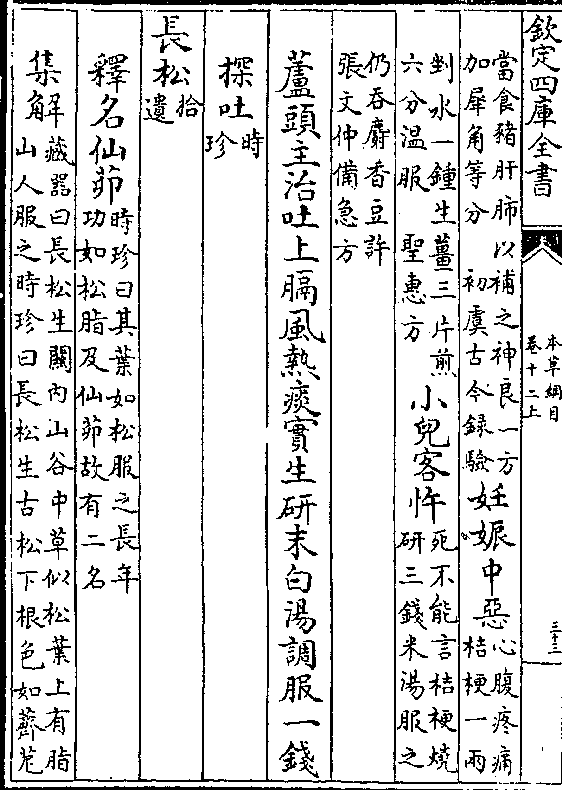 欽定四庫全書
本草綱目
卷十二上
三十三
當食豬肝肺以補之神良一方
加犀角等分 初虞古今録驗
妊娠中惡
心腹疼痛
桔梗一兩
剉水一鍾生薑三片煎
六分温服 聖惠方
小兒客忤
死不能言桔梗燒
研三錢米湯服之
仍吞麝香豆許
張文仲備急方
蘆頭主治吐上膈風熱痰實生研末白湯調服一錢
探吐
時
珍
長松
拾
遺
釋名仙茆
時珍曰其葉如松服之長年
功如松脂及仙茆故有二名
集解
藏器曰長松生關內山谷中草似松葉上有脂
山人服之時珍曰長松生古松下根色如薺苨